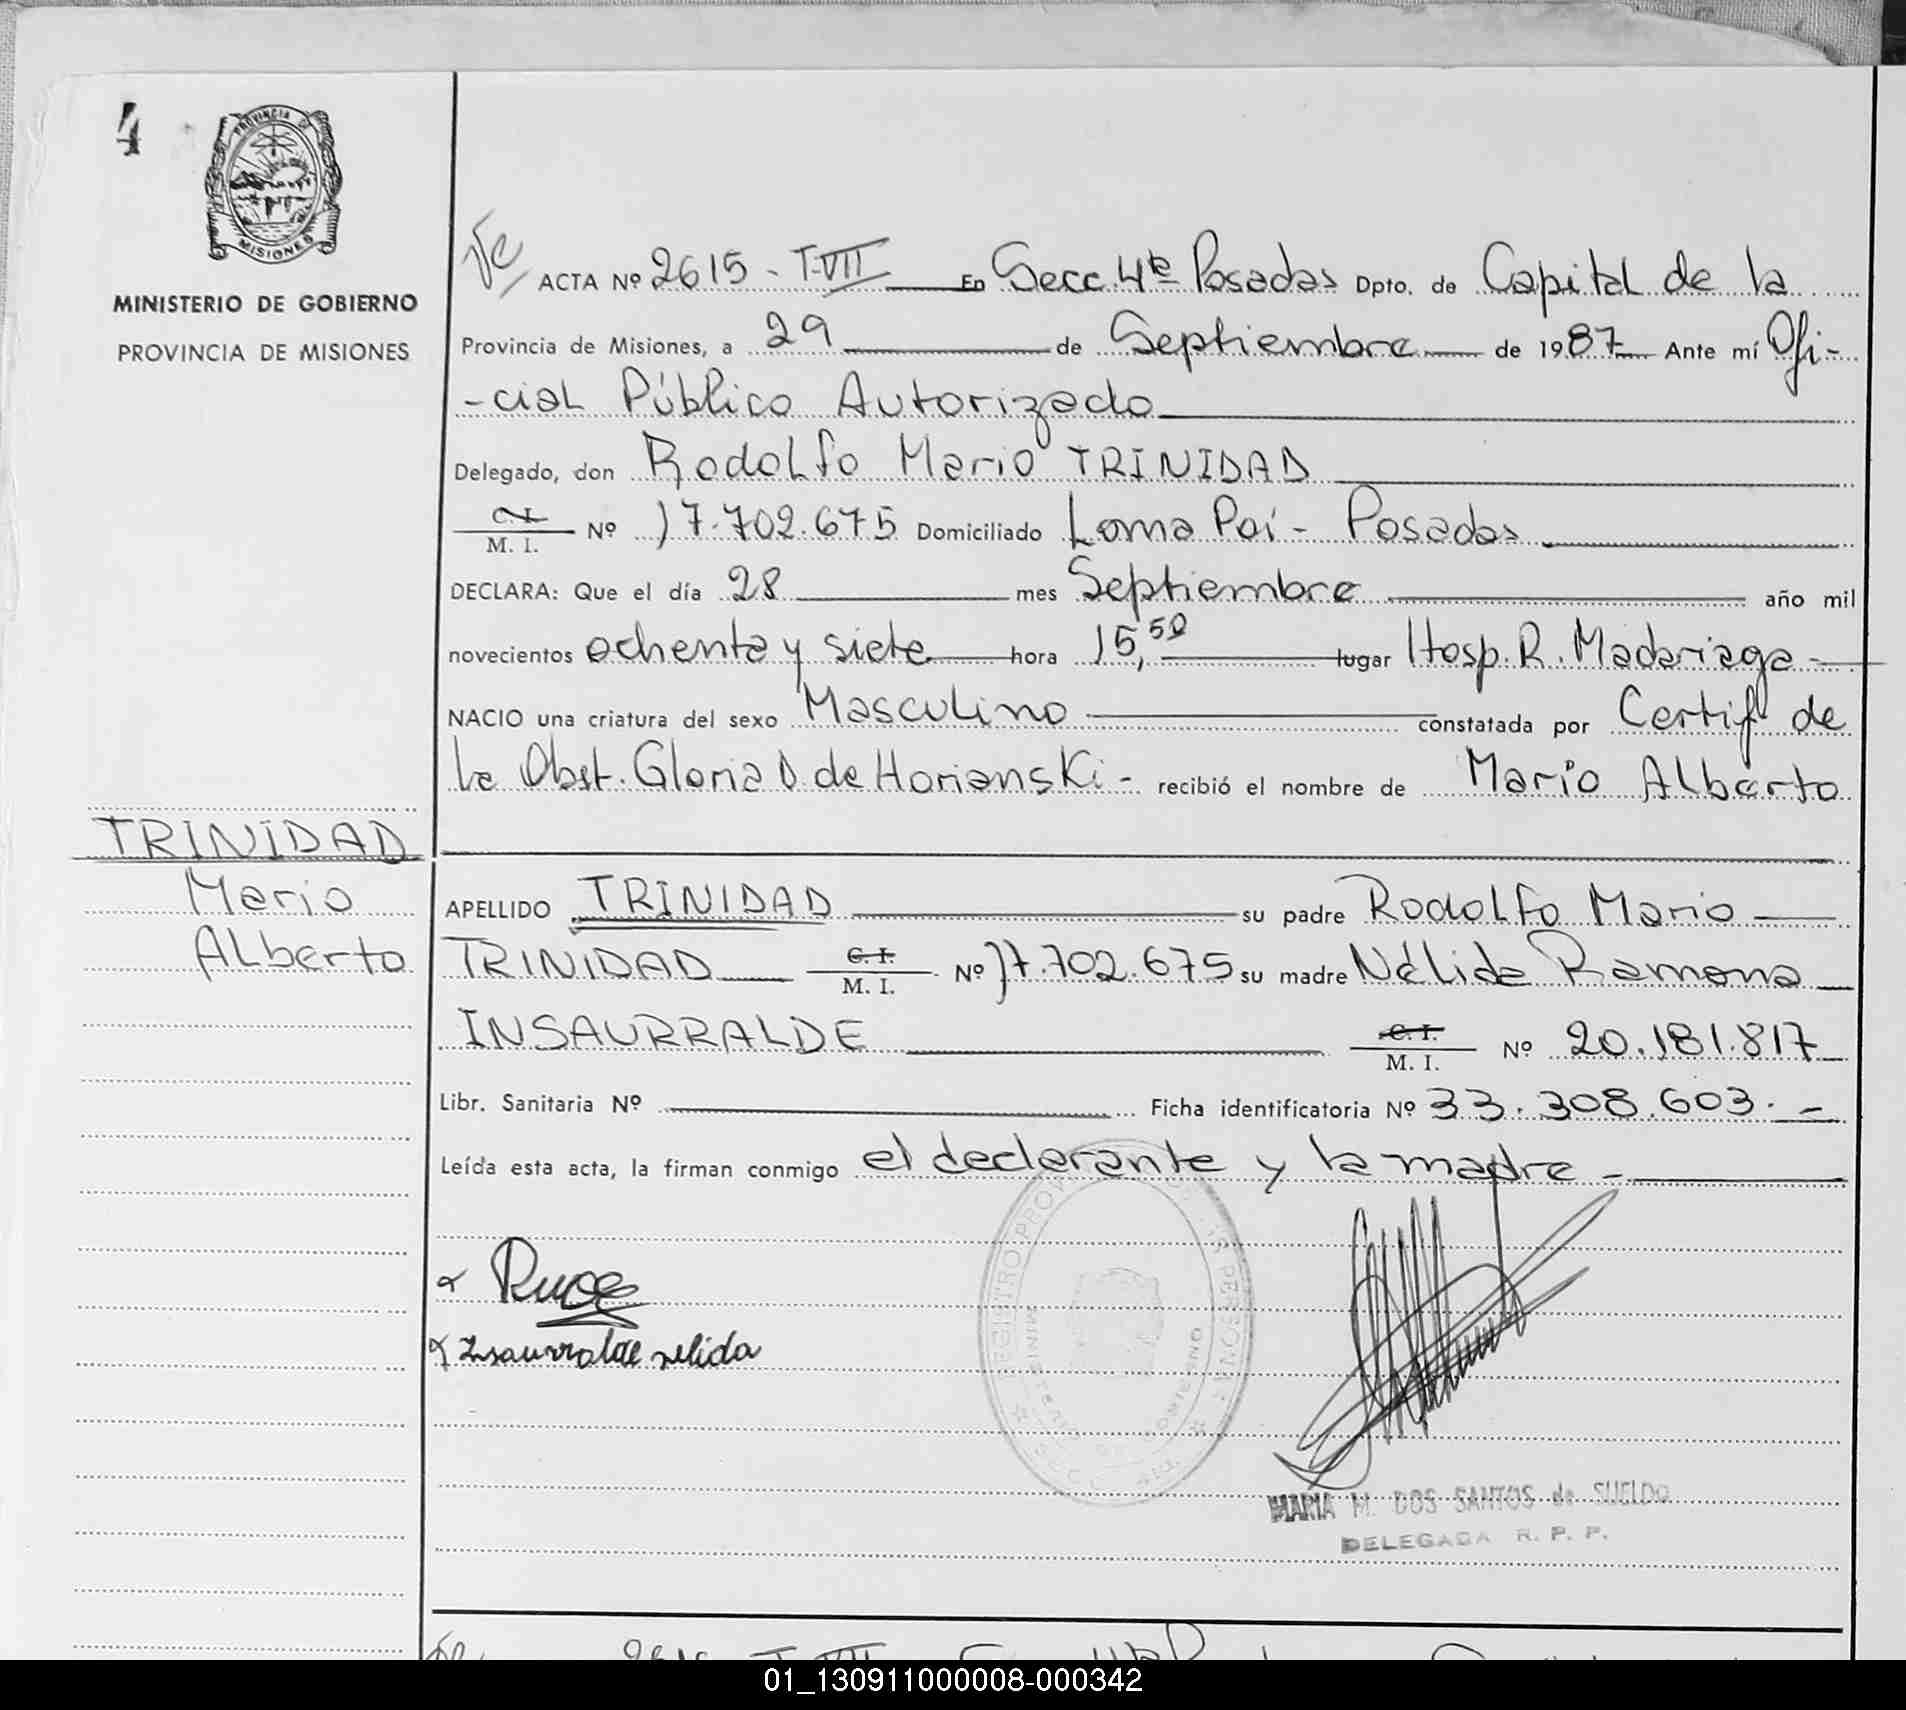 4
PROVINCIA DE
MISIONES
MINISTERIO DE GOBIERNO
PROVINCIA DE MISIONES
TRINIDAD
Mario
Alberto
ACTA Nº 2615 - T-VII En Secc. 4ta Posadas Dpto. de Capital de la
Provincia de Misiones, a 29 de Septiembre de 1987 Ante mí Ofi-
-cial Público Autorizado
Delegado, don Rodolfo Mario TRINIDAD
C. I.
M. I. Nº 17.702.675 Domiciliado Loma Poí - Posadas
DECLARA: Que el día 28 mes Septiembre año mil
novecientos ochenta y siete hora 15,50 lugar Hosp. R. Madariaga -
NACIO una criatura del sexo Masculino constatada por Certif de
la Obst. Gloria D. de Horianski - recibió el nombre de Mario Alberto
APELLIDO TRINIDAD su padre Rodolfo Mario
TRINIDAD C. I. M. I. Nº 17.702.675 su madre Nélida Ramona
INSAURRALDE C. I. M. I. Nº 20.181.817
Libr. Sanitaria Nº Ficha identificatoria Nº 33.308.603. -
Leída esta acta, la firman conmigo el declarante y la madre -
Insaurralde nelida
REGISTRO PROV PERSONAS
MINISTERIO DE GOBIERNO
MARIA M. DOS SANTOS de SUELDO
DELEGADA R. P. P.
01_130911000008-000342